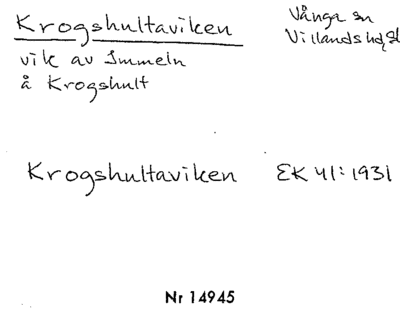 Krogshultaviken
Vånga sn
Villands hd, Sk
vik av Immeln
å Krogshult
Krogshultaviken EK 41:1931
Nr 14945